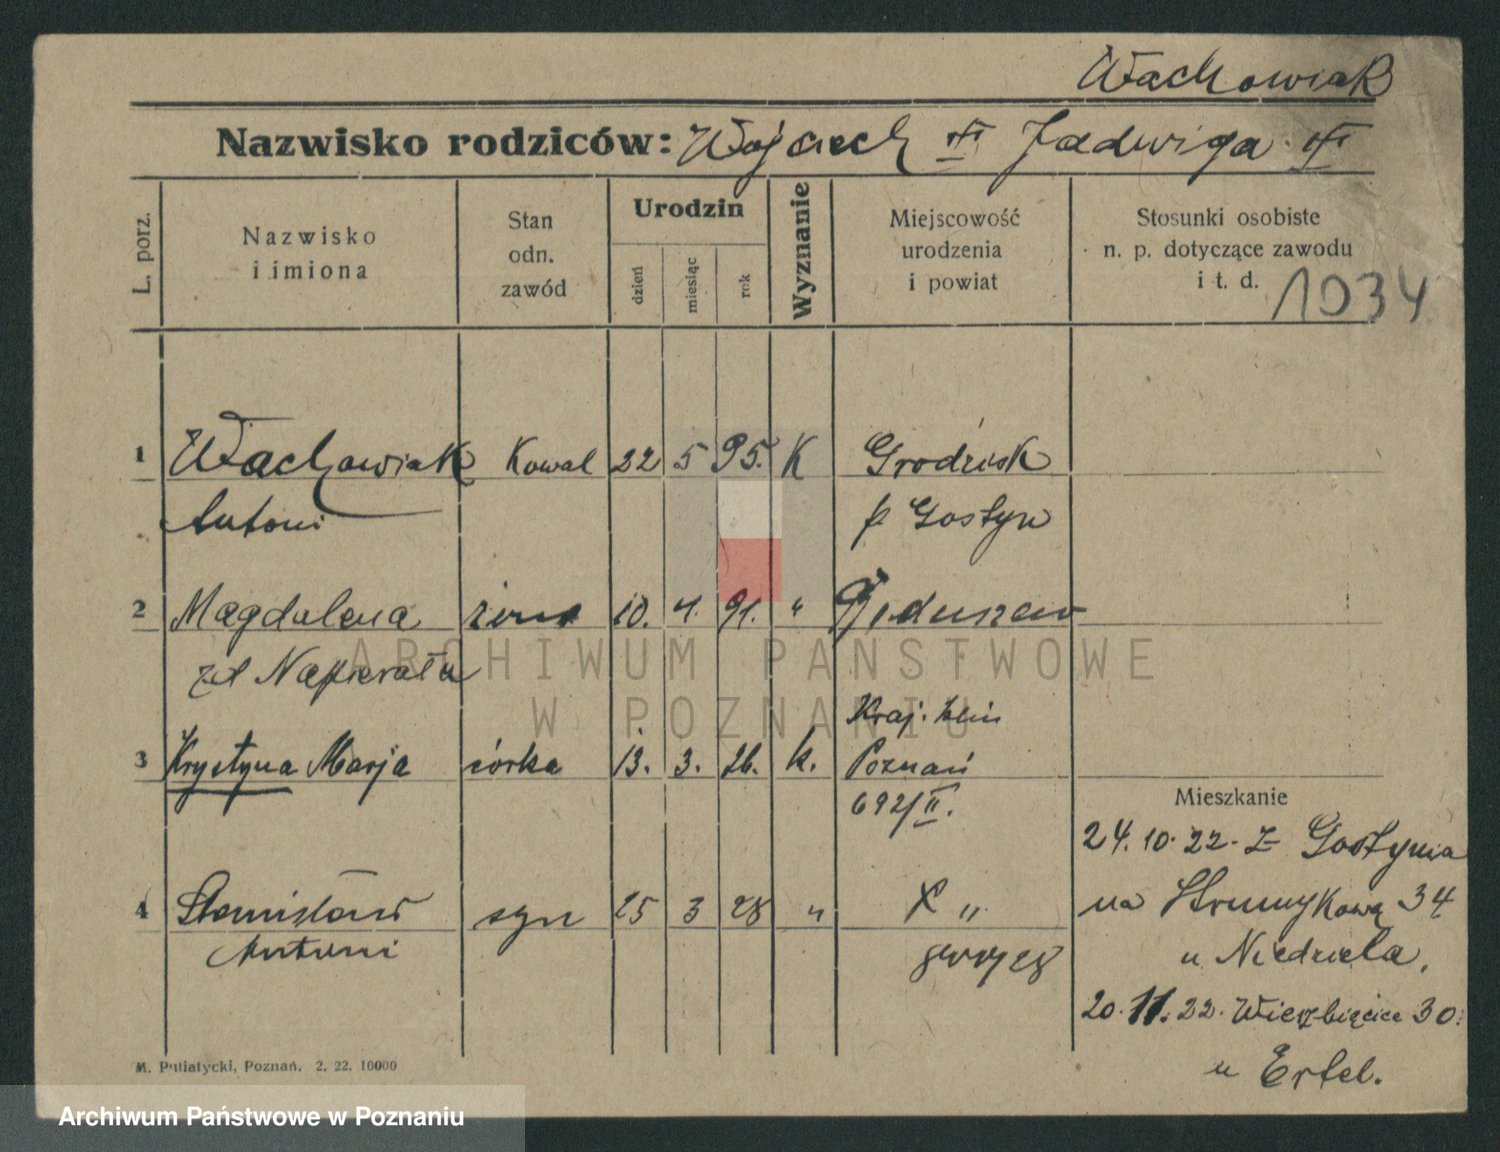 Wachowiak
Nazwisko rodziców: Wojciech Jadwiga
L. porz.
Nazwisko
i imiona
Stan
odn.
zawód
Urodzin
dzień
miesiąc
rok
Wyznanie
Miejscowość
urodzenia
i powiat
Stosunki osobiste
n. p. dotyczące zawodu
i t. d.
1034
1 Wachowiak Kowal 22 5 95. K Grodzisk
Antoni p Gostyn
2 Magdalena żona 10. 4. 91. "
Napierała
3 Krystyna Marja córka 13. 3. 26. k. Poznań
692/II.
Mieszkanie
24. 10. 22. z Gostynia
4 Stanisław syn 25 3 28 " "
Antoni
na Strumykową 34
u Niedziela.
20. 11. 22. Wierzbięcice 30.
u Ertel.
M. Putiatycki, Poznań. 2. 22. 10000
ARCHIWUM PAŃSTWOWE
W POZNANIU
Archiwum Państwowe w Poznaniu